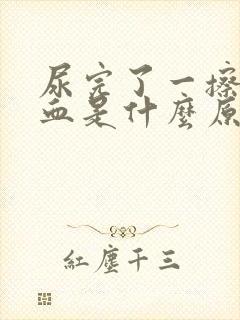 尿完了一擦
血是什麼原
紅塵千三